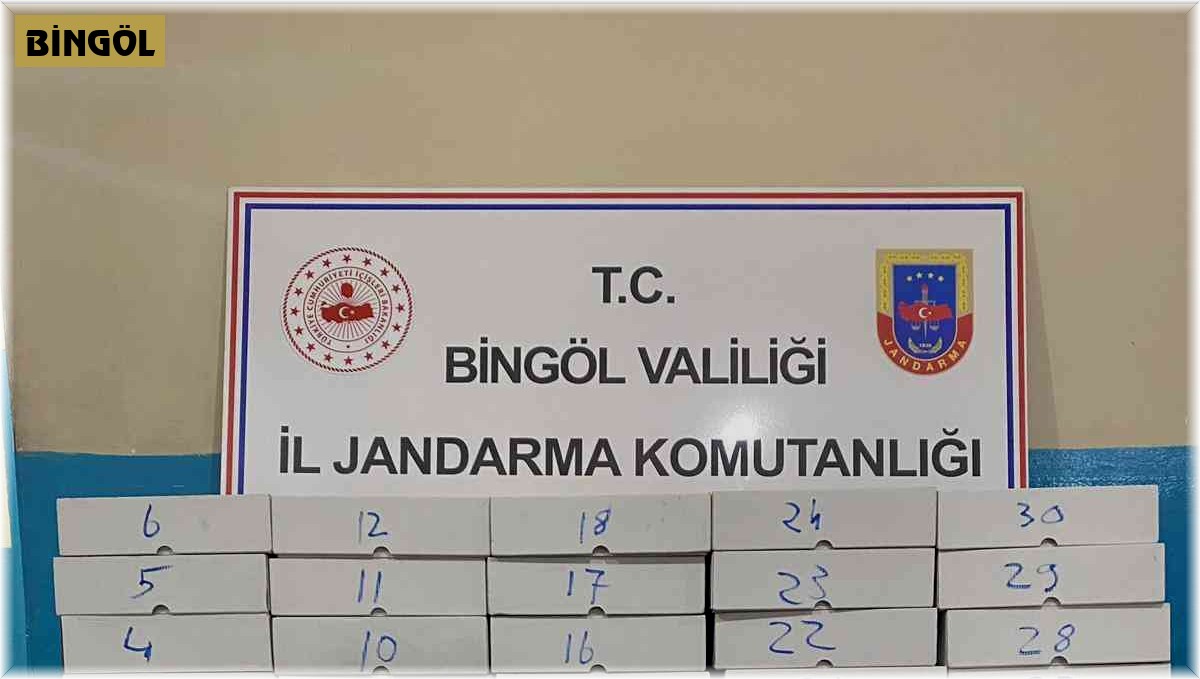 BİNGÖL
T.C.
BİNGÖL VALİLİĞİ
İL JANDARMA KOMUTANLIĞI
TÜRKİYE CUMHURİYETİ İÇİŞLERİ BAKANLIĞI
JANDARMA
6 12 18 24 30
5 11 17 23 29
4 10 16 22 28